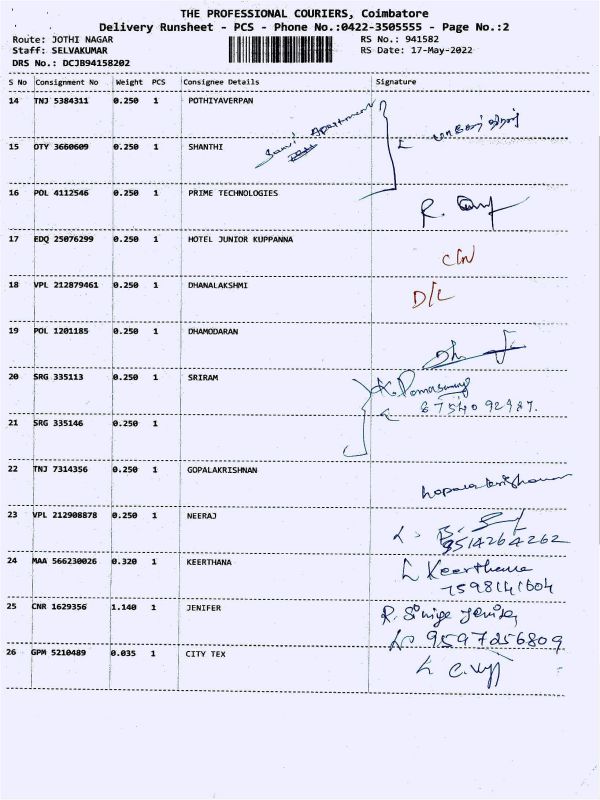 THE PROFESSIONAL COURIERS, Coimbatore
Delivery Runsheet - PCS - Phone No.:0422-3505555 - Page No.:2
Route: JOTHI NAGAR RS No.: 941582
Staff: SELVAKUMAR RS Date: 17-May-2022
DRS No.: DCJB94158202
S No Consignment No Weight PCS Consignee Details Signature
14 TNJ 5384311 0.250 1 POTHIYAVERPAN
Apartment
15 OTY 3660609 0.250 1 SHANTHI
16 POL 4112546 0.250 1 PRIME TECHNOLOGIES
R.
17 EDQ 25076299 0.250 1 HOTEL JUNIOR KUPPANNA
18 VPL 212879461 0.250 1 DHANALAKSHMI
D/L
19 POL 1201185 0.250 1 DHAMODARAN
20 SRG 335113 0.250 1 SRIRAM
21 SRG 335146 0.250 1
22 TNJ 7314356 0.250 1 GOPALAKRISHNAN
23 VPL 212908878 0.250 1 NEERAJ
9514264262
24 MAA 566230026 0.320 1 KEERTHANA
Keerthana
7598141604
25 CNR 1629356 1.140 1 JENIFER
9597256809
26 GPM 5210489 0.035 1 CITY TEX